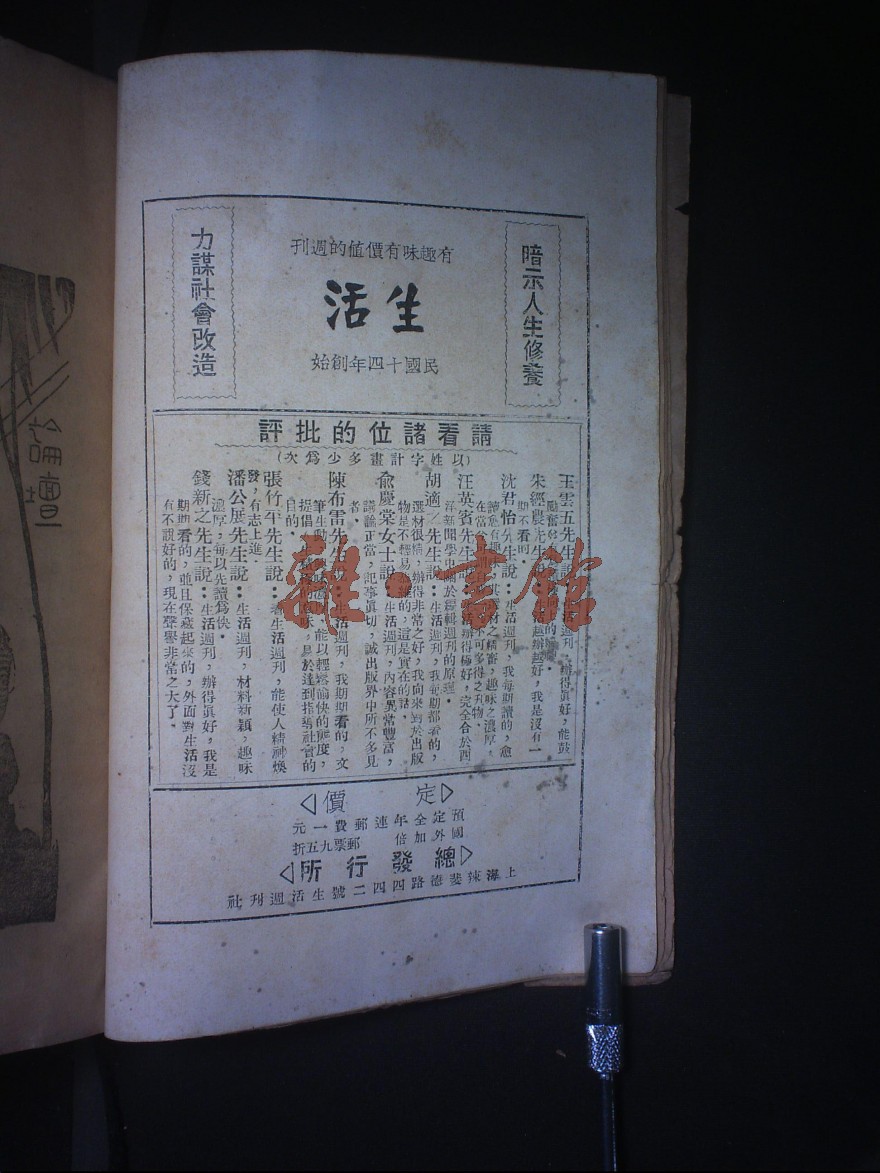 論壇
暗示人生修養
有趣味有價值的週刊
生活
民國十四年創始
力謀社會改造
請看諸位的批評
(以姓字計畫多少爲次)
王雲五先生說 生活週刊,辦得眞好,能鼓
勵奮
朱經農先生說 越辦越好,我是沒有一
期不看的。
沈君怡先生說:生活週刊,我每期讀的,愈
讀愈有 其選材之精審,趣味之濃厚,
在當 不可多得之刊物。
汪英賓先生說 生活辦得極好,完全合於西
洋新聞學中關於編輯週刊的原理。
胡適之先生說:生活週刊,我每期都看的,
選材很精,辦得非常之好,我向來對於出版
物是不輕易 的,這是實在的話。
俞慶棠女士說:生活週刊,內容異常豐富,
議論正當,記事眞切,誠出版界中所不多見
者。
陳布雷先生說:生活週刊,我期期看的,文
筆生動 能以輕鬆愉快的態度,
提倡 的 味,易於達到指導社會的
目的。
張竹平先生說:看生活週刊,能使人精神煥
發,有志上進。
潘公展先生說:生活週刊,材料新穎,趣味
濃厚,每以先讀爲快。
錢新之先生說:生活週刊,辦得眞好,我是
期期看的,並且保藏起來的,外面對生活沒
有不說好的,現在聲譽非常之大了。
定價
預定全年連郵費一元
國外加倍 郵票九五折
總發行所
上海辣斐德路四四二號生活週刊社
雜·書館